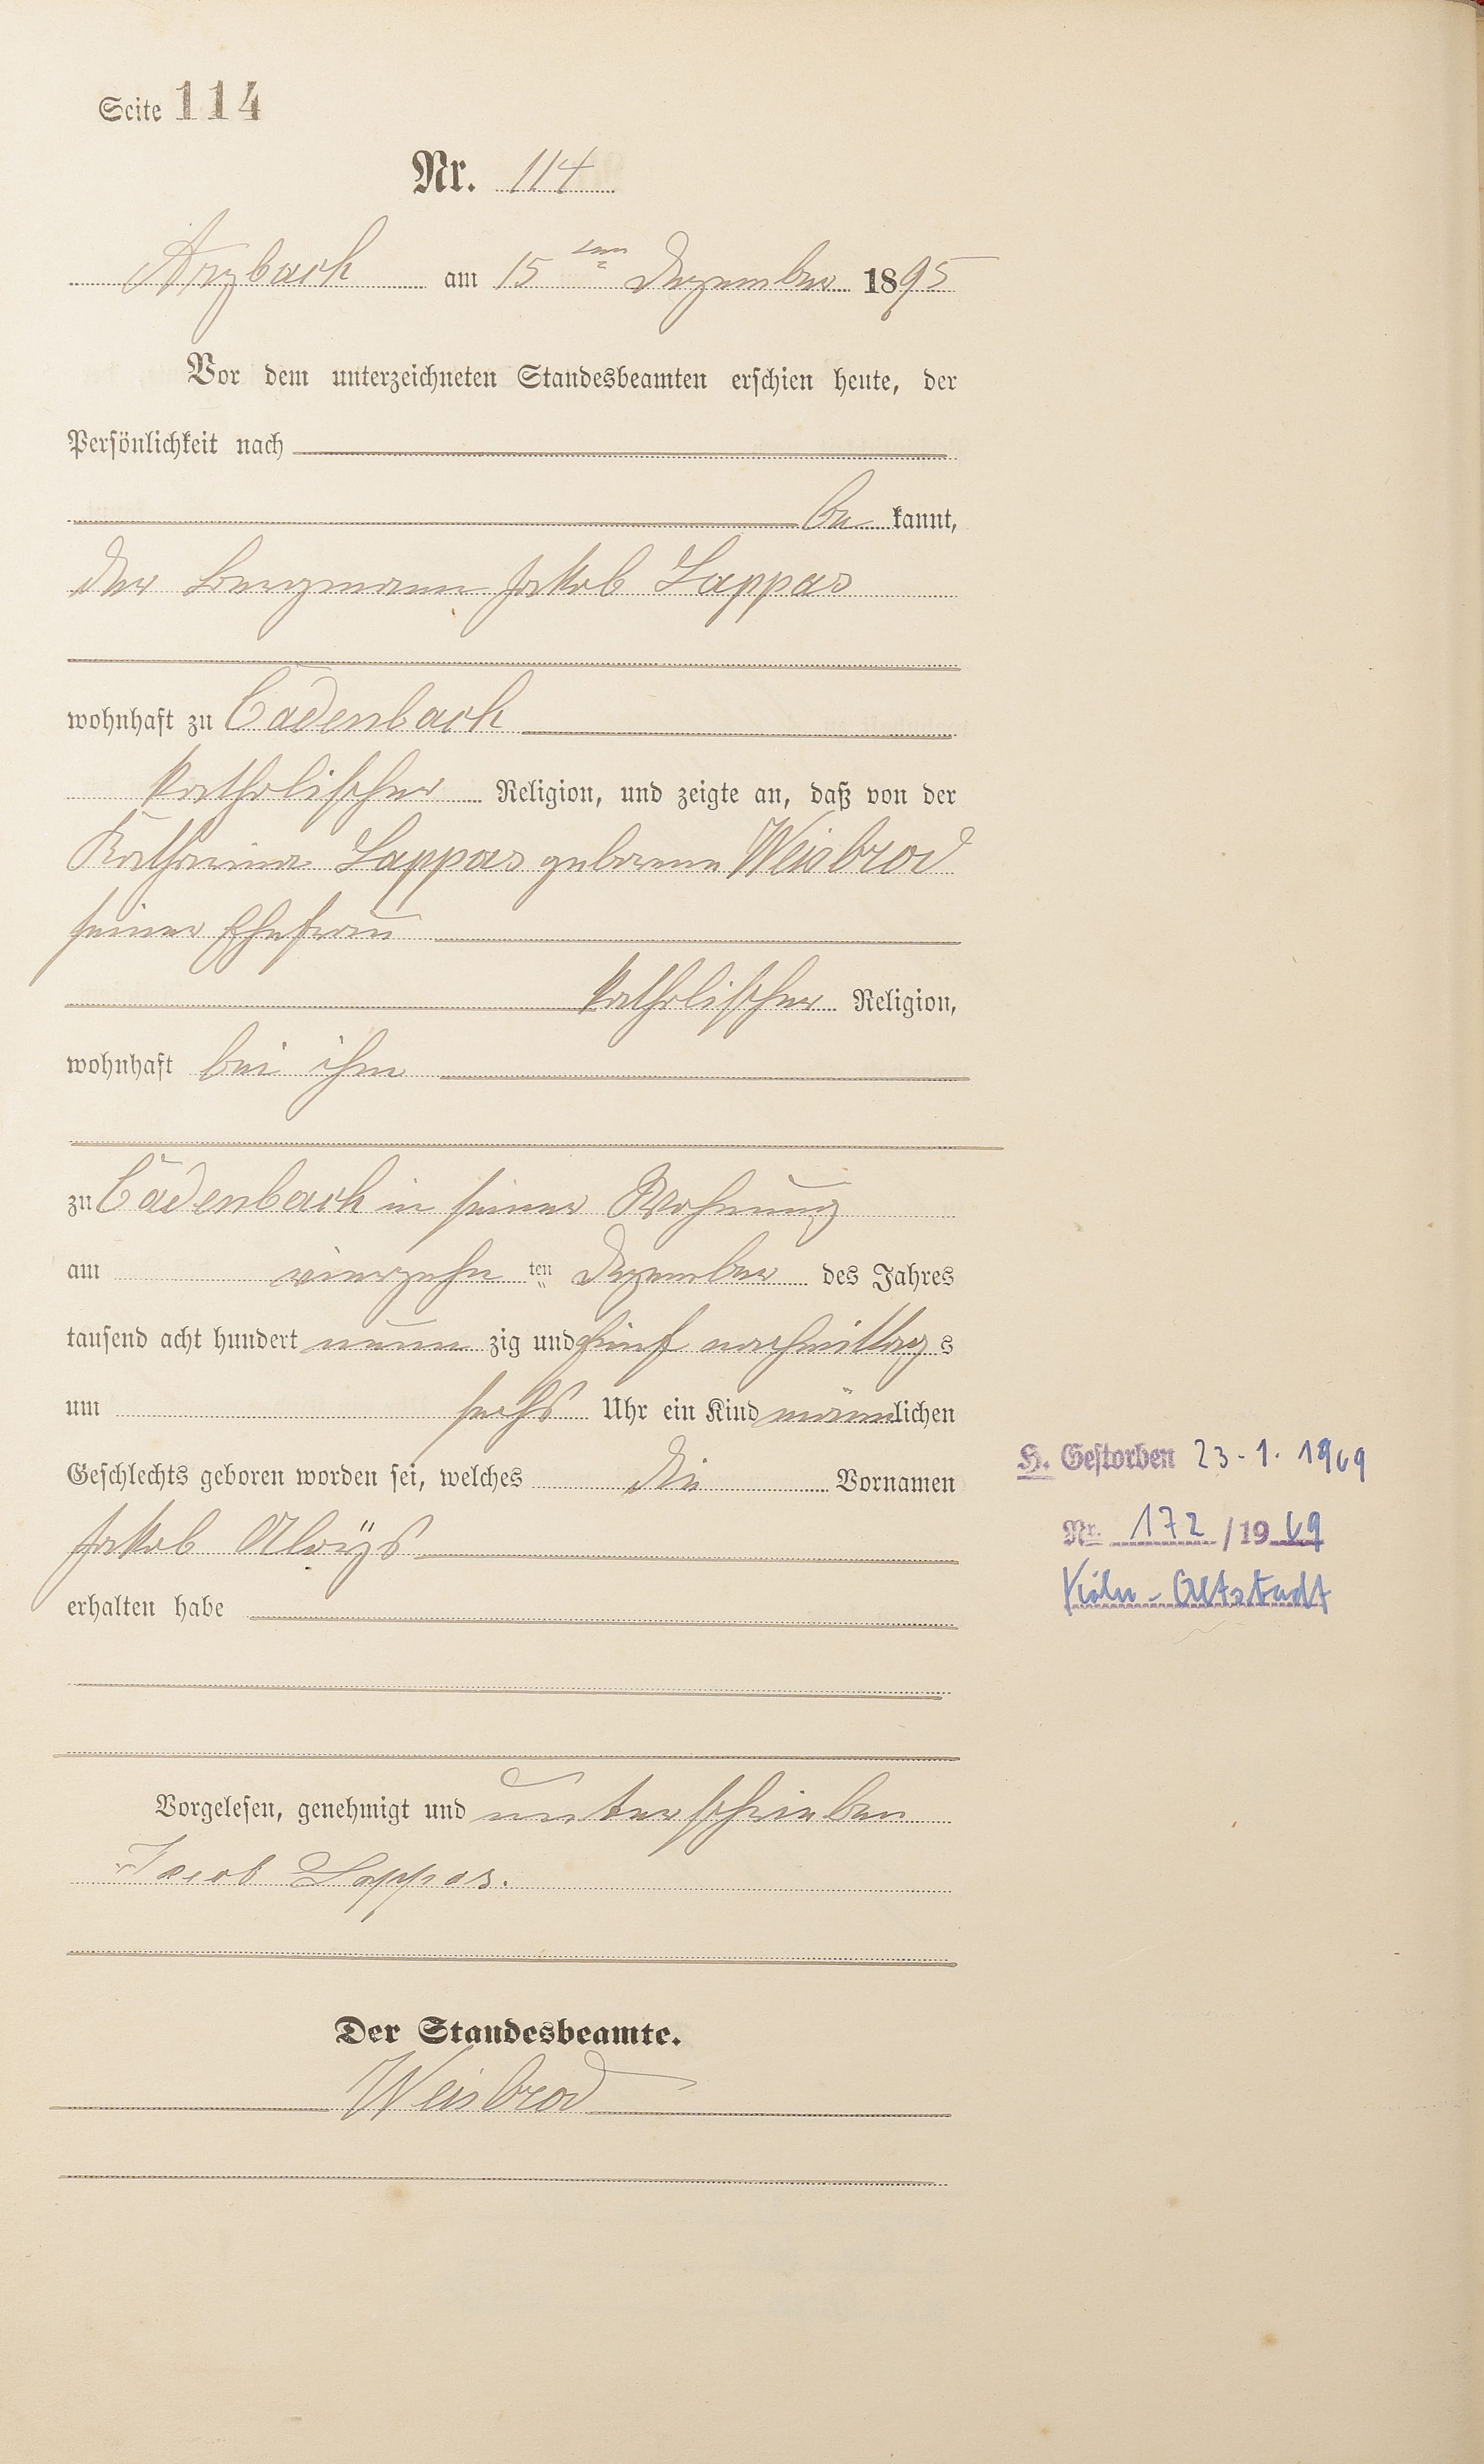 Seite 114
Nr. 114
Arzbach am 15ten Dezember 1895
Vor dem unterzeichneten Standesbeamten erschien heute, der
Persönlichkeit nach
be kannt,
der Bergmann Jakob Lappas
wohnhaft zu Cadenbach
katholischer Religion, und zeigte an, daß von der
Katharina Lappas geborene Weisbrod
seiner Ehefrau
katholischer Religion,
wohnhaft bei ihm
zu Cadenbach in seiner Wohnung
am vierzehn ten Dezember des Jahres
tausend acht hundert neun zig und fünf nachmittag s
um sechs Uhr ein Kind männlichen
Geschlechts geboren worden sei, welches die Vornamen
Jakob Aloÿs
erhalten habe
H. Gestorben 23.1.1969
Nr. 172/1969
Köln-Altstadt
Vorgelesen, genehmigt und unterschrieben
Jacob Lappas.
Der Standesbeamte.
Weisbrod